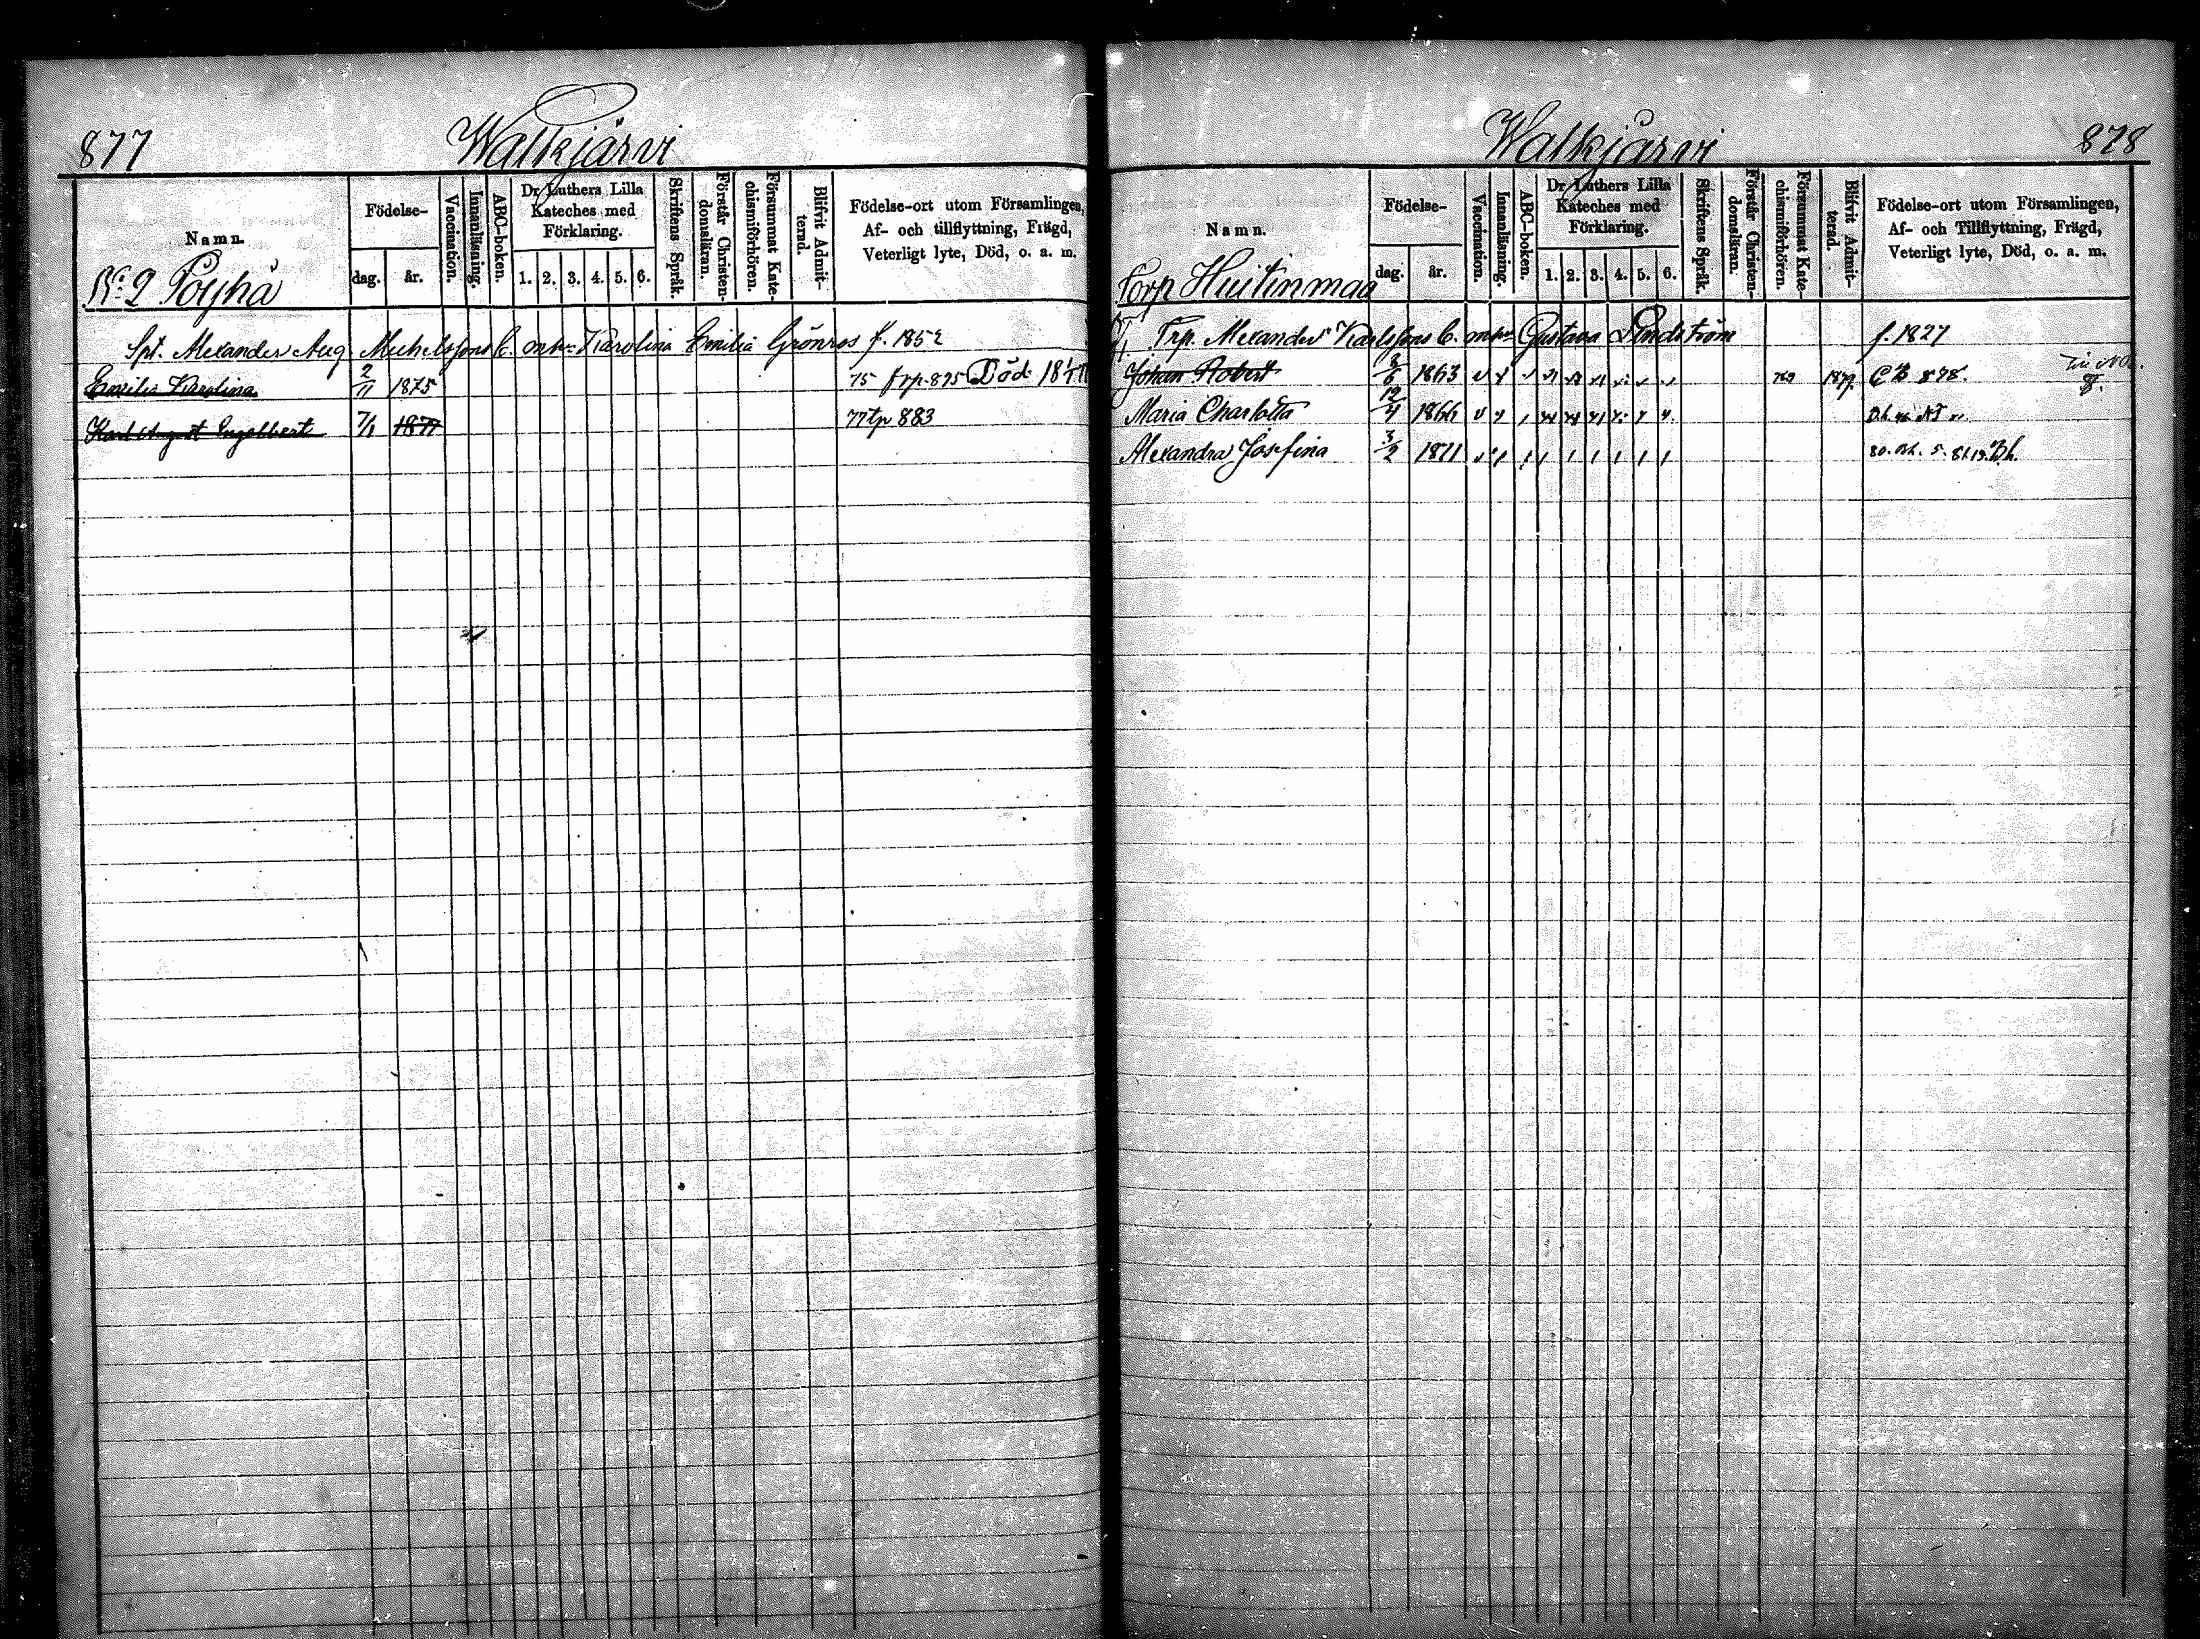 877 Walkjärvi
Namn.
Födelse-
dag. år.
Vaccination.
Innanläsning.
ABC-boken.
Dr Luthers Lilla
Kateches med
Förklaring.
1. 2. 3. 4. 5. 6.
Skriftens Språk.
Förstår Christen-
domsläran.
Försummat Kate-
chismiförhören.
Blifvit Admit-
terad.
Födelse-ort utom Församlingen,
Af- och tillflyttning, Frägd,
Veterligt lyte, Död, o. a. m.
No 2 Pöyhä
Spt. Alexander Aug. Michelssons b. m hu Karolina Emilia Grönros f. 1852
Emilia Karolina 2/11 1875 75 frp. 875 Död
Karl August Engelbert 7/1 1877 77 tp 883
Walkjärvi 878
Namn.
Födelse-
dag. år.
Vaccination.
Innanläsning.
ABC-boken.
Dr Luthers Lilla
Kateches med
Förklaring.
1. 2. 3. 4. 5. 6.
Skriftens Språk.
Förstår Christen-
domsläran.
Försummat Kate-
chismiförhören.
Blifvit Admit-
terad.
Födelse-ort utom Församlingen,
Af- och Tillflyttning, Frägd,
Veterligt lyte, Död, o. a. m.
Torp Huitinmaa
Trp. Alexander Karlssons b. m hu Gustava Lindström f. 1827
Johan Robert 3/6 1863 1879
Maria Charlotta 12/4 1866
Alexandra Josefina 3/2 1871